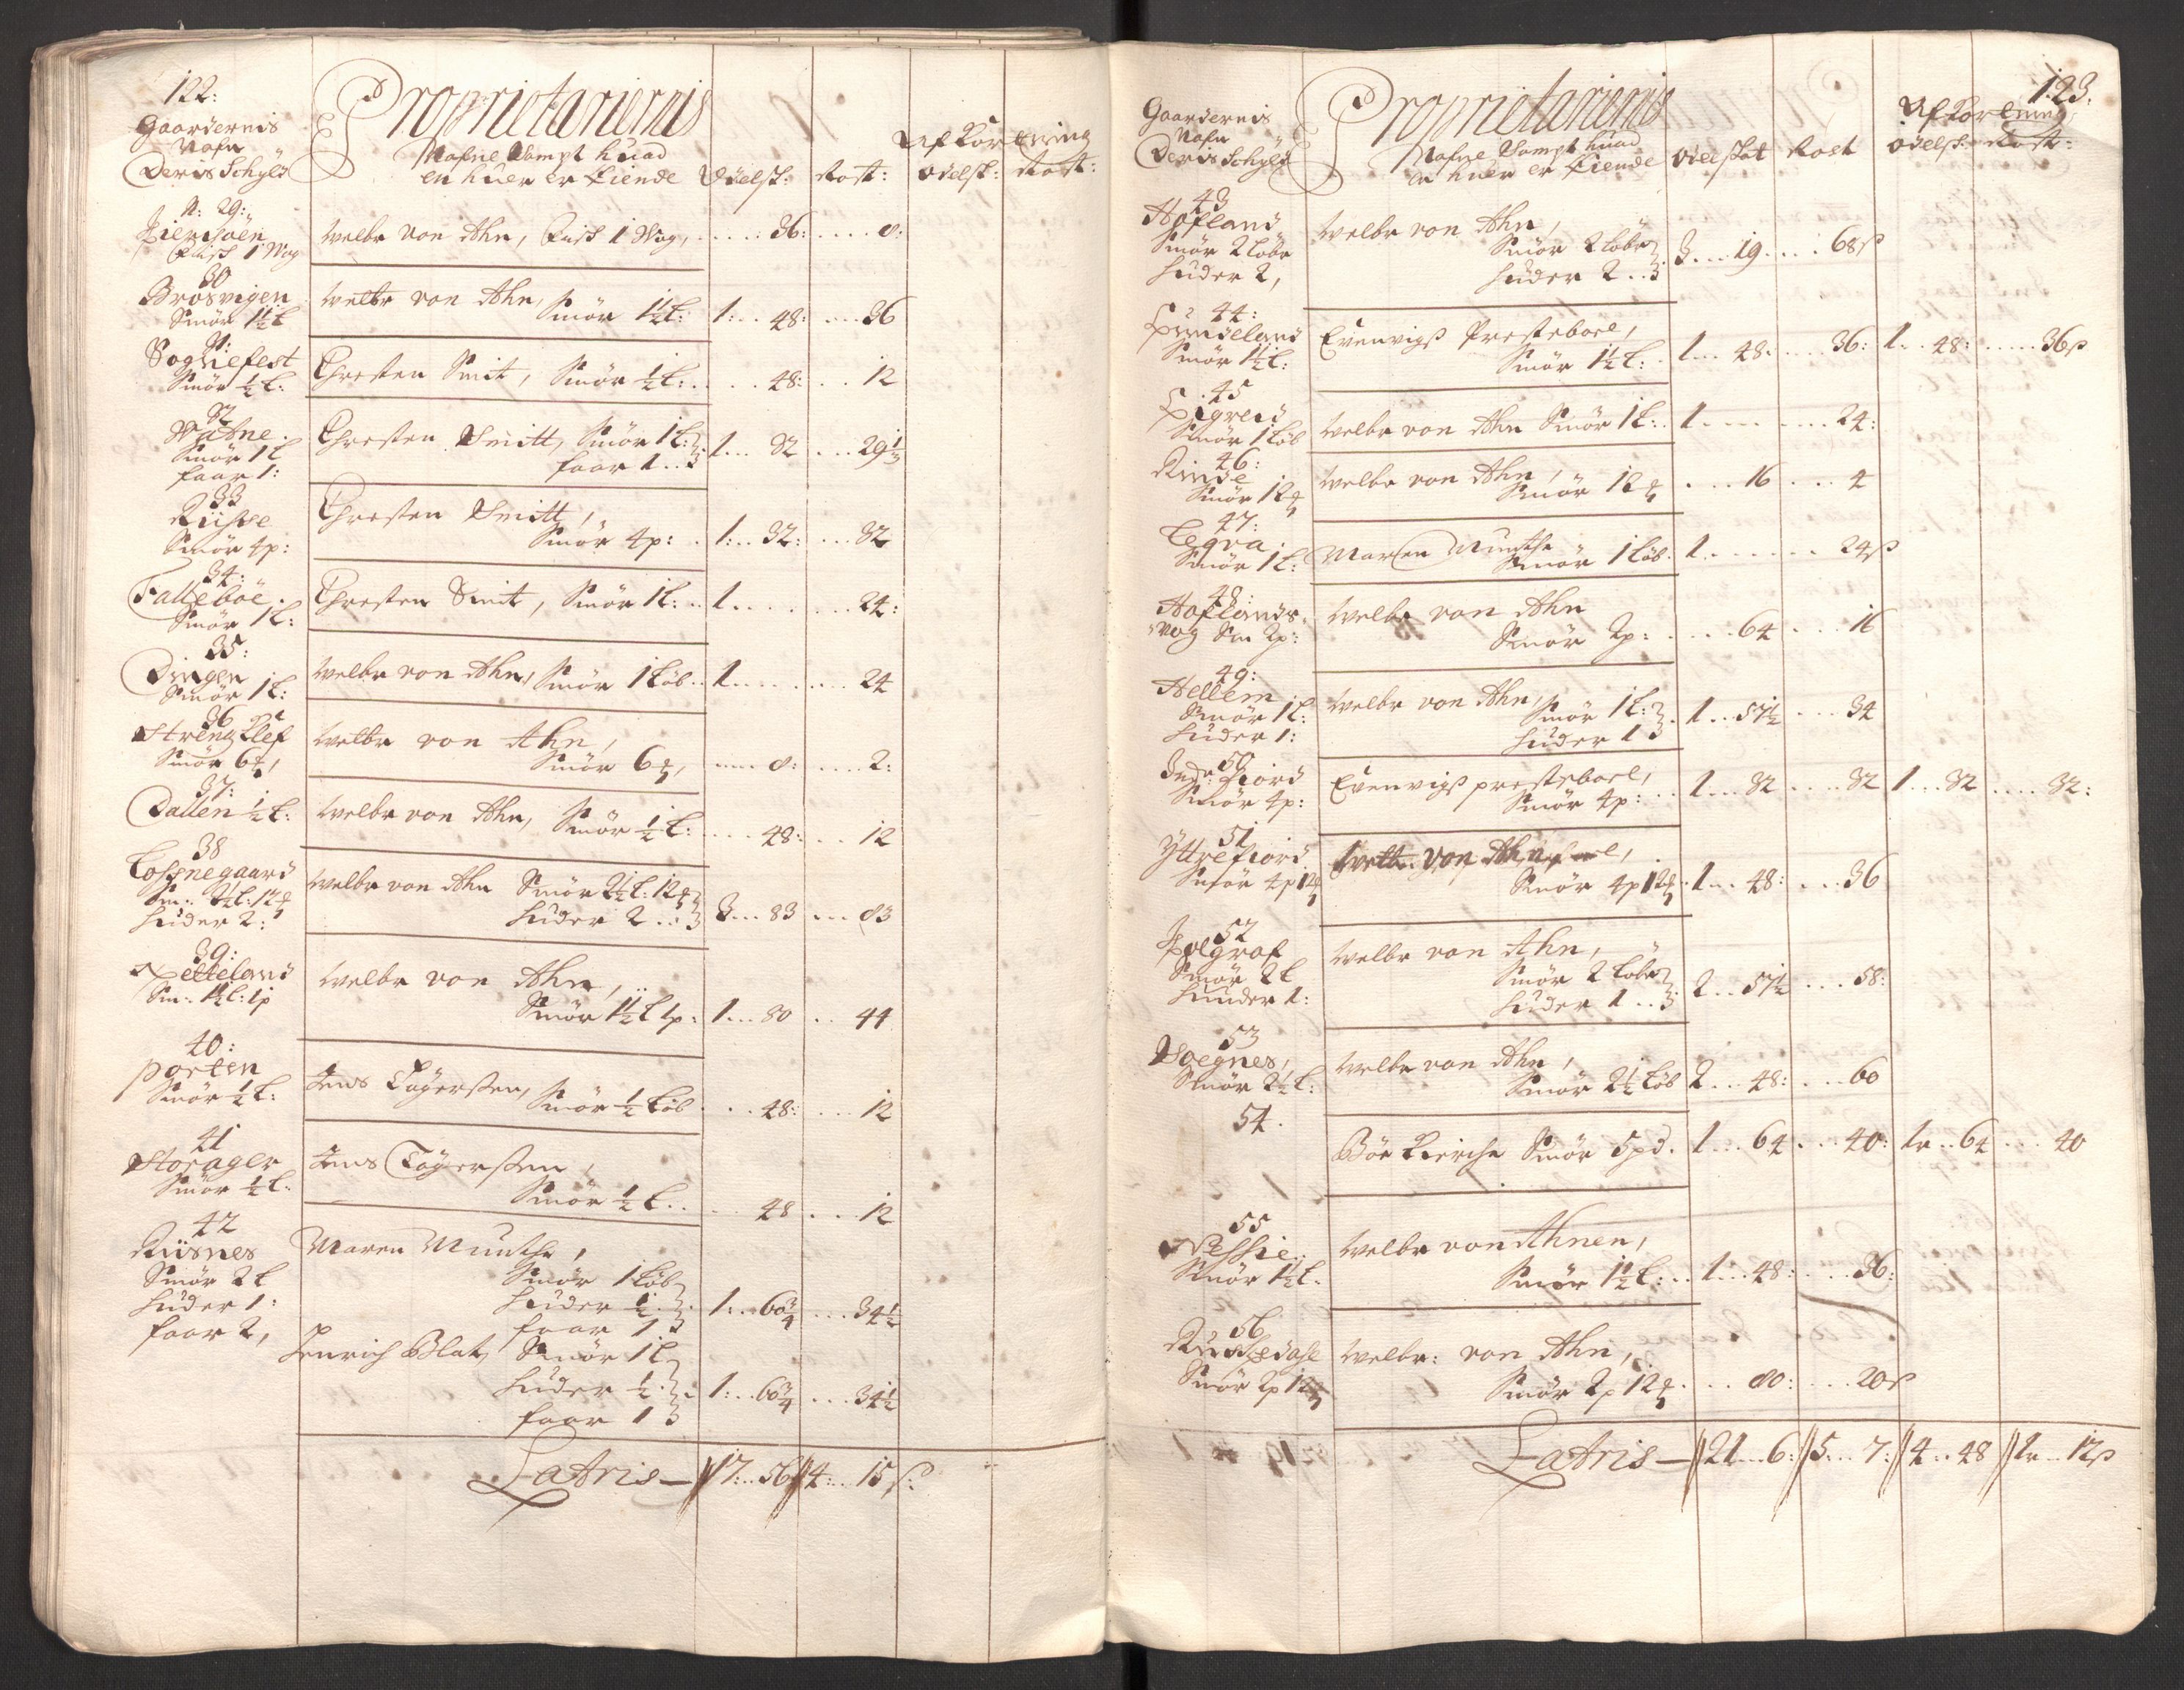 122:
Gaardernis
Nafn
Deris Schyld
Proprietariernis
Nafne Sampt huad
en huer er Eiende
Odelsk: Rost:
Afkortning
Odelsk: Rost:
N: 29:
Fisch 1 Wog
Welbr von Ahn, Fisch 1 Wog, 36: 8:
30
Brosvigen
Smör 1½ L
Welbr von Ahn, Smör 1½ L: 1: 48: 36
31:
Sognefest
Smör ½ L:
Chresten Smit, Smör ½ L: 48: 12
32
Watne
Smör 1 L
faar 1:
Chresten Smitt, Smör 1 L:
faar 1 1 32 29⅓
33
Smör 4p:
Chresten Smitt,
Smör 4p: 1: 32: 32
34:
Falleböe
Smör 1 L:
Chresten Smit, Smör 1 L: 1 24:
35:
Dingen
Smör 1 L:
Welbr von Ahn, Smör 1 Löb 1 24
36
Strengllef
Smör 6
Welbr von Ahn,
Smör 6 8: 2:
37:
Dallen ½ L:
Welbr von Ahn, Smör ½ L: 48: 12
38
Lossnegaard
Sm: 2½ L: 12
Huder 2:
Welbr von Ahn Smör 2½ L: 12
Huder 2 3 83 83
39:
Sm: 1½ L: 1p
Welbr von Ahn,
Smör 1½ L 1p: 1 80 44
40:
Porten
Smör ½ L:
Jens Töyerssen, Smör ½ Löb 48: 12
41
Storager
Smör ½ L:
Jens Töyerssen,
Smör ½ L 48 12
42
Riisnes
Smör 2 L
Huder 1:
faar 2,
Maren Munthe,
Smör 1 Löb
Huder ½ 1: 60¾ 34½
faar 1
Henrich Blat, Smör 1 L
Huder ½ 1: 60¾ 34½
faar 1
Latris 17: 56 4: 15 s:
123.
Gaardernis
Nafn
Deris Schyld
Proprietariernis
Nafne Sampt huad
en huer er Eiende
Odelskat Rost
Afkortning
Odelsk: Rost:
43
Hofland
Smör 2 Löbr
Huder 2,
Welbr von Ahn,
Smör 2 Löbr
Huder 2 3 19 68 s
44:
Smör 1½ L:
Evenvigs Presteboel,
Smör 1½ L: 1 48: 36: 1 48: 36 s
45
Smör 1 Löb
Welbr von Ahn Smör 1 L: 1 24:
46:
Rinde
Smör 12
Welbr von Ahn,
Smör 12 16 4
47:
Legra
Smör 1 L:
Maren Munthe
Smör 1 Löb. 1 24 s
48:
Hoflands
vog Sm 2p:
Welbr von Ahn
Smör 2p: 64 16
49:
Hellem
Smör 1 L:
Huder 1:
Welbr von Ahn,
Smör 1 L:
Huder 1 1 57½ 34
50
Indre Fiord
Smör 4p:
Evenvigs presteboel,
Smör 4p: 1 32 32 1 32 32:
51
Yttrefiord
Smör 4p 12
Welbr von Ahn,
Smör 4p 12 1 48: 36
52
Smör 2 L
Huuder 1:
Welbr von Ahn,
Smör 2 Löbr
Huder 1 2 57½ 58:
53
Smör 2½ L:
Welbr von Ahn,
Smör 2½ Löb 2 48: 60
54.
Böe Kierche Smör 5pd. 1 64 40: 1r 64 40
55
Smör 1½ L.
Welbr von Ahnen,
Smör 1½ L: 1 48: 36:
56
Smör 2p 12
Welbr: von Ahn,
Smör 2p 12 80: 20 s
Latris 21 6: 5 7: 4 48 1r 12 s